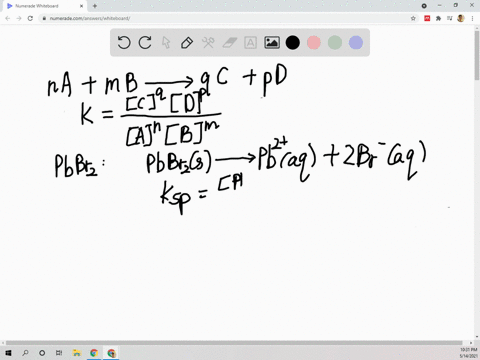 Numerade Whiteboard
numerade.com/answers/whiteboard/
nA + mB → qC + pD
K = [C]^q [D]^p / [A]^n [B]^m
PbBr₂: PbBr₂(s) → Pb²⁺(aq) + 2Br⁻(aq)
Ksp = [Pb
10:31 PM
5/14/2021